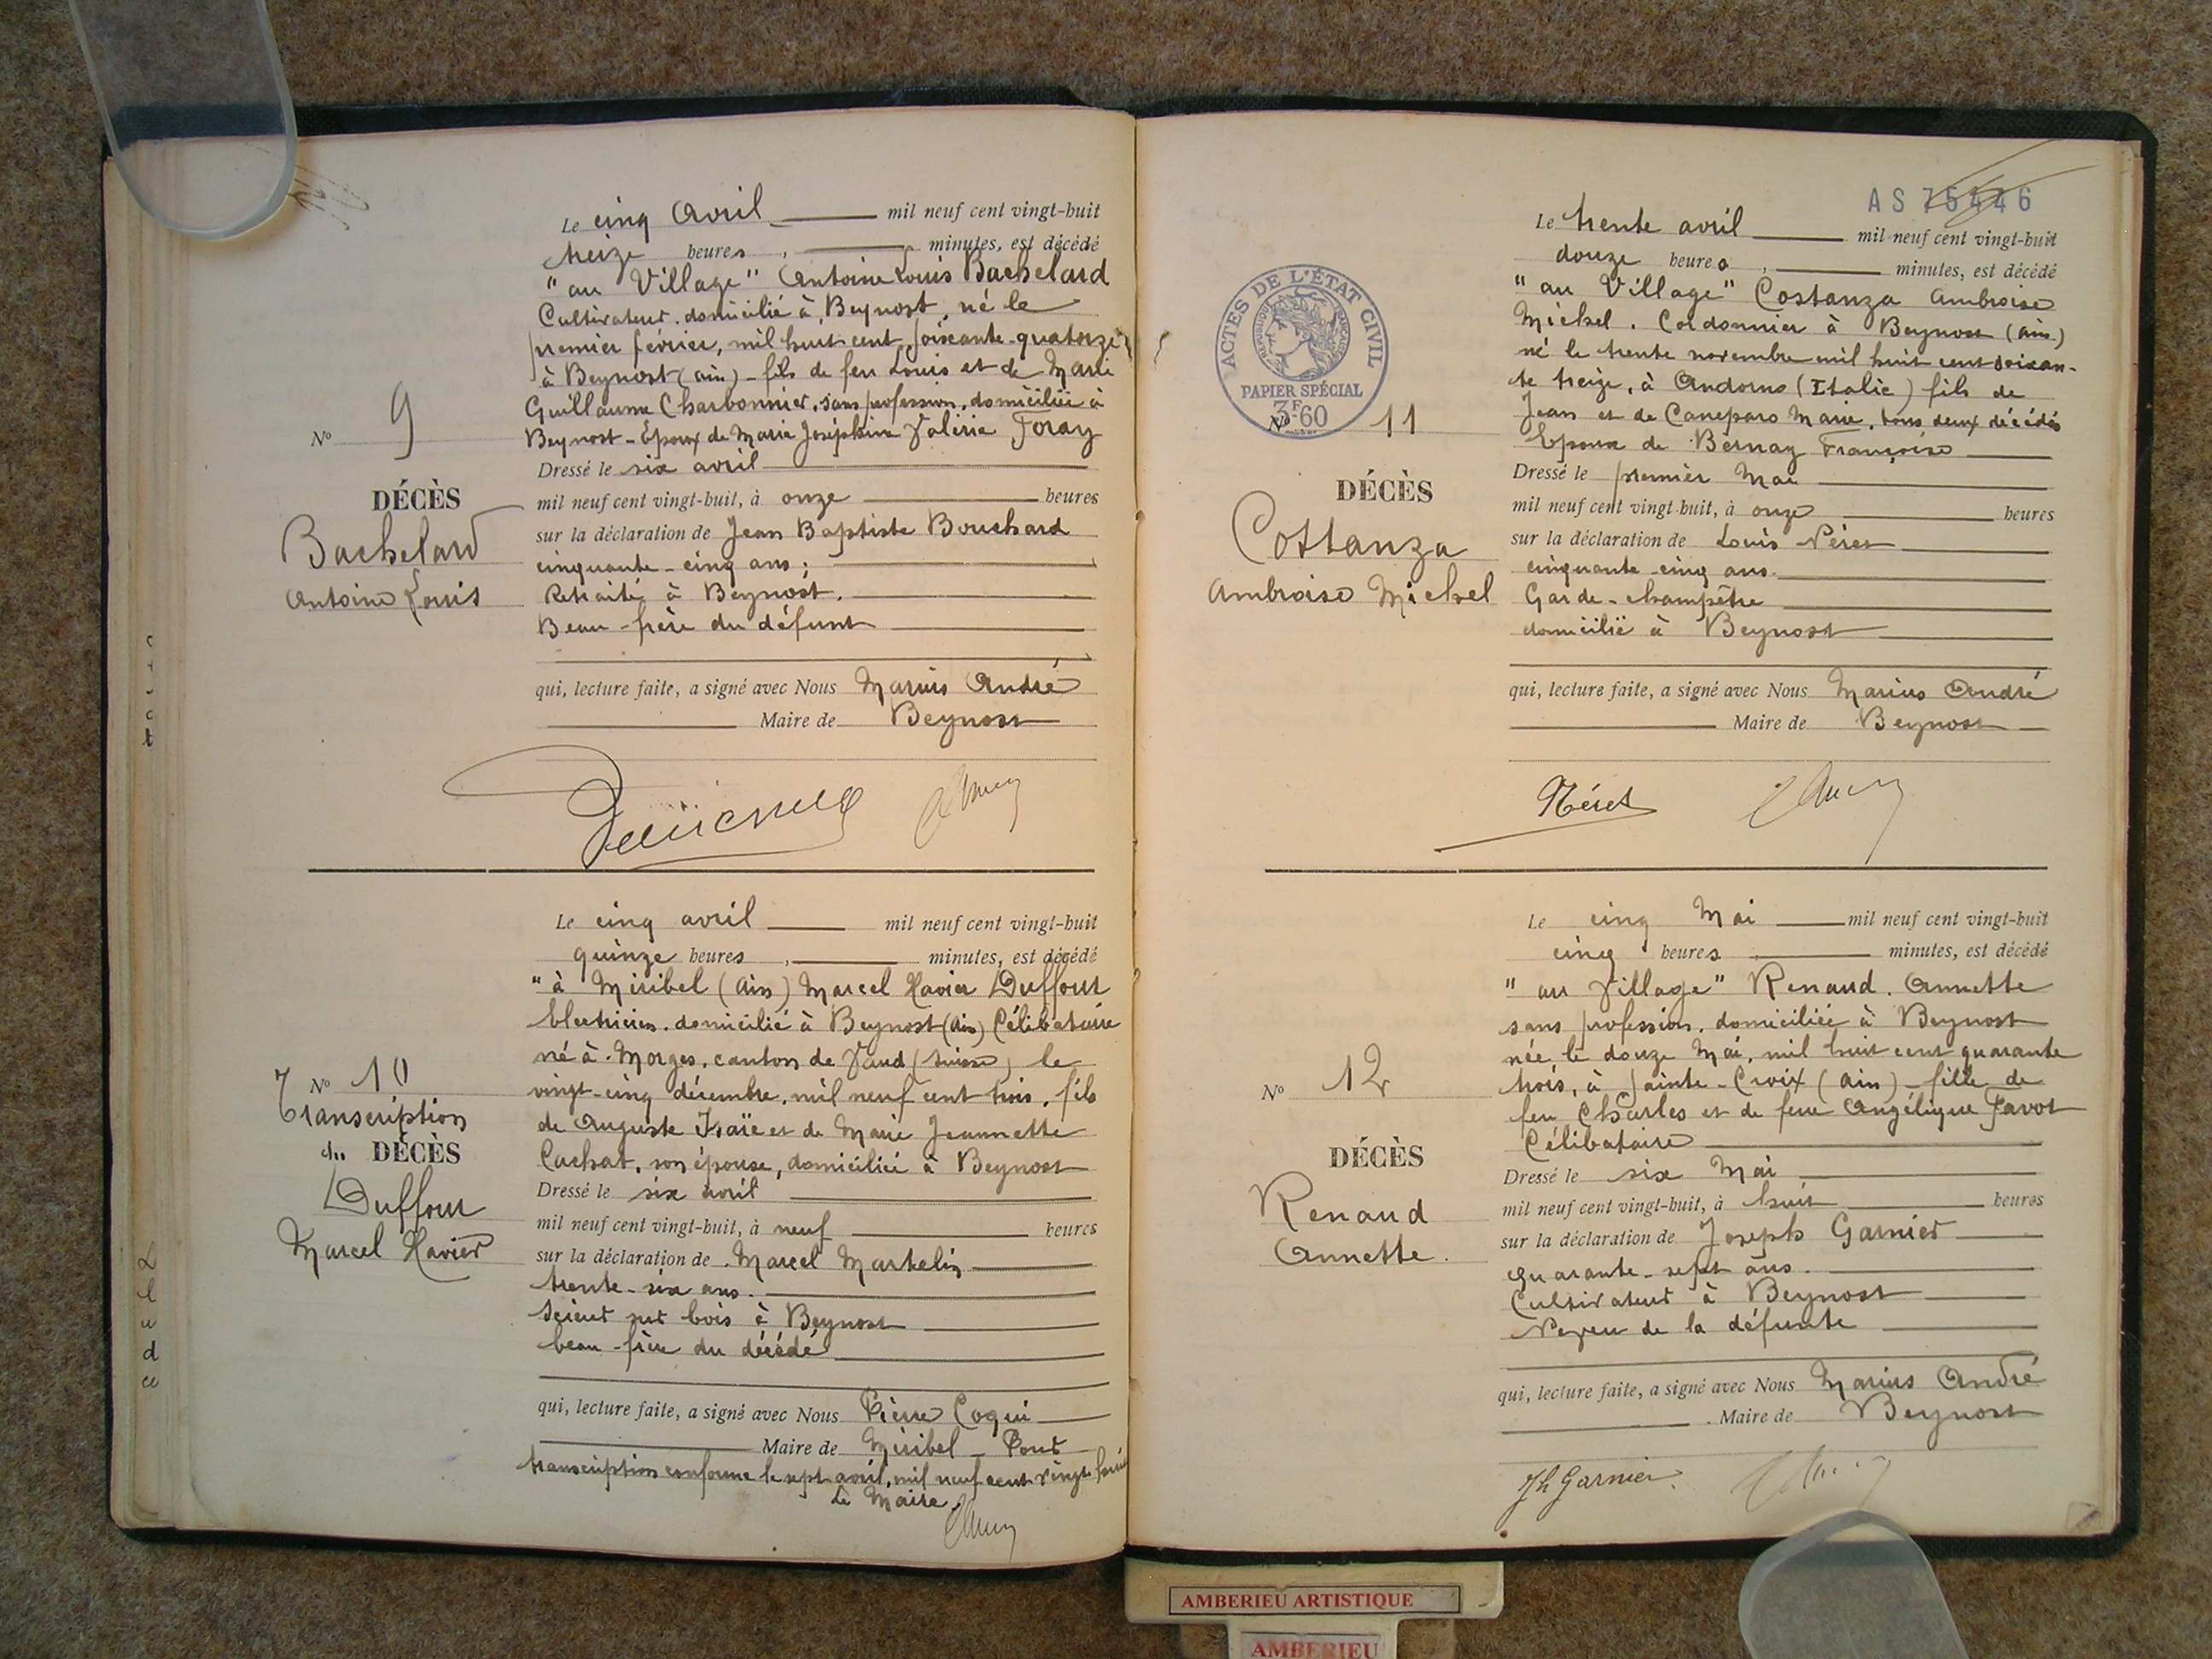 Le cinq Avril mil neuf cent vingt-huit
treize heures, minutes, est décédé
"au Village" Antoine Louis Bachelard
Cultivateur. domicilié à Beynost, né le
premier février, mil huit cent soixante-quatorze
à Beynost (ain) - fils de feu Louis et de Marie
Guillaume Charbonnier, sans profession, domiciliée à
Beynost - Epoux de Marie Joséphine Valérie Foray
Nº 9
Dressé le six avril
DÉCÈS
mil neuf cent vingt-huit, à onze heures
Bachelard
sur la déclaration de Jean Baptiste Bouchard
cinquante-cinq ans;
Antoine Louis
Retraité à Beynost.
Beau-frère du défunt
qui, lecture faite, a signé avec Nous Marius André
Maire de Beynost
Le cinq avril mil neuf cent vingt-huit
quinze heures, minutes, est décédé
"à Miribel (Ain) Marcel Xavier Duffour
Electricien. domicilié à Beynost (Ain) Célibataire
né à Morges, canton de Vaud (Suisse) le
Nº 10
vingt-cinq décembre, mil neuf cent trois, fils
Transcription
de Auguste Isaïe et de Marie Jeannette
du DÉCÈS
Cachat, son épouse, domiciliée à Beynost
Duffour
Dressé le six avril
mil neuf cent vingt-huit, à neuf heures
Marcel Xavier
sur la déclaration de Marcel Martelin
trente-six ans.
Scieur sur bois à Beynost
beau-frère du décédé
qui, lecture faite, a signé avec Nous Pierre Coqui
Maire de Miribel - Pour
transcription conforme le sept avril, mil neuf cent vingt huit
Le Maire.
AS 75446
Le trente avril mil neuf cent vingt-huit
douze heures, minutes, est décédé
"au Village" Costanza Ambroise
Michel. Cordonnier à Beynost (ain)
né le trente novembre mil huit cent soixan-
te treize, à Andorno (Italie) fils de
Jean et de Caneparo Marie, tous deux décédés
Epoux de Bernay Françoise
ACTES DE L'ÉTAT CIVIL
RÉPUBLIQUE FRANÇAISE
PAPIER SPÉCIAL
3F60
Nº 11
Dressé le premier Mai
DÉCÈS
mil neuf cent vingt-huit, à onze heures
Costanza
sur la déclaration de Louis Néret
cinquante-cinq ans.
Ambroise Michel
Garde-champêtre
domicilié à Beynost
qui, lecture faite, a signé avec Nous Marius André
Maire de Beynost
Néret
Le cinq Mai mil neuf cent vingt-huit
cinq heures minutes, est décédé
"au Village" Renaud. Annette
sans profession. domiciliée à Beynost
née le douze Mai, mil huit cent quarante
Nº 12
trois, à Sainte-Croix (Ain) - fille de
feu Charles et de feue Angélique Javot
Célibataire
DÉCÈS
Dressé le six Mai
Renaud
mil neuf cent vingt-huit, à huit heures
Annette.
sur la déclaration de Joseph Garnier
quarante-sept ans.
Cultivateur à Beynost
Neveu de la défunte
qui, lecture faite, a signé avec Nous Marius André
Maire de Beynost
Jh Garnier.
AMBERIEU ARTISTIQUE
AMBERIEU